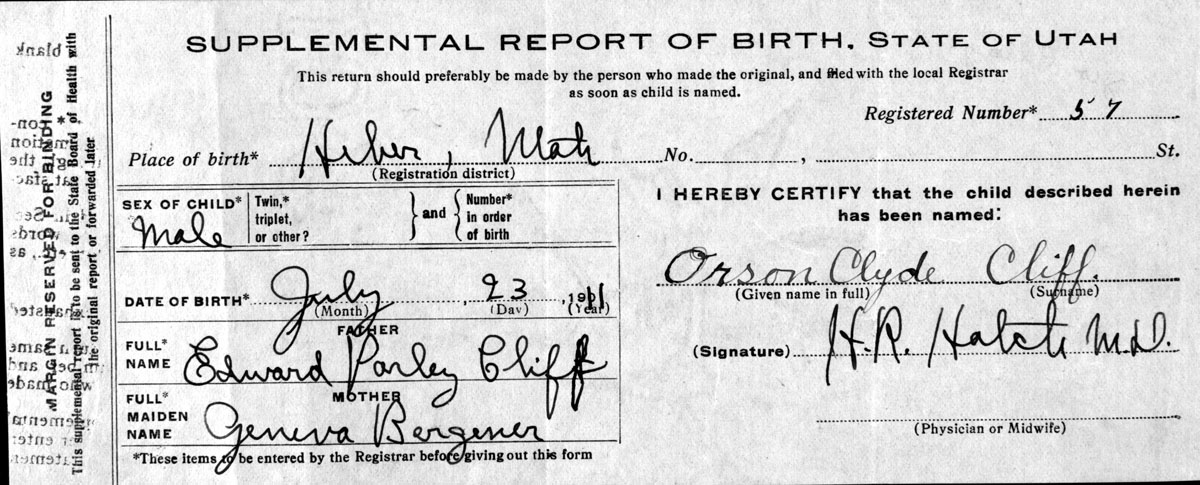 SUPPLEMENTAL REPORT OF BIRTH, STATE OF UTAH
This return should preferably be made by the person who made the original, and filed with the local Registrar
as soon as child is named.
Registered Number* 57
Place of birth* Heber, Utah No. , St.
(Registration district)
SEX OF CHILD* Male
Twin,* triplet, or other? } and { Number* in order of birth
DATE OF BIRTH* July, 23, 1911
(Month) (Day) (Year)
FATHER
FULL* NAME Edward Parley Cliff
MOTHER
FULL* MAIDEN NAME Geneva Bergener
*These items to be entered by the Registrar before giving out this form
I HEREBY CERTIFY that the child described herein
has been named:
Orson Clyde Cliff.
(Given name in full) (Surname)
(Signature) H.R. Hatch M.D.
(Physician or Midwife)
MARGIN RESERVED FOR BINDING
This supplemental report is to be sent to the State Board of Health with
the original report or forwarded later